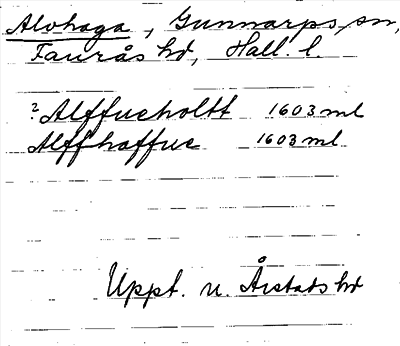 Alvhaga, Gunnarps sn,
Faurås hd, Hall. l.
? Alffueholtt 1603 ml
Alffhaffue 1603 ml
Uppt. u. Årstads hd